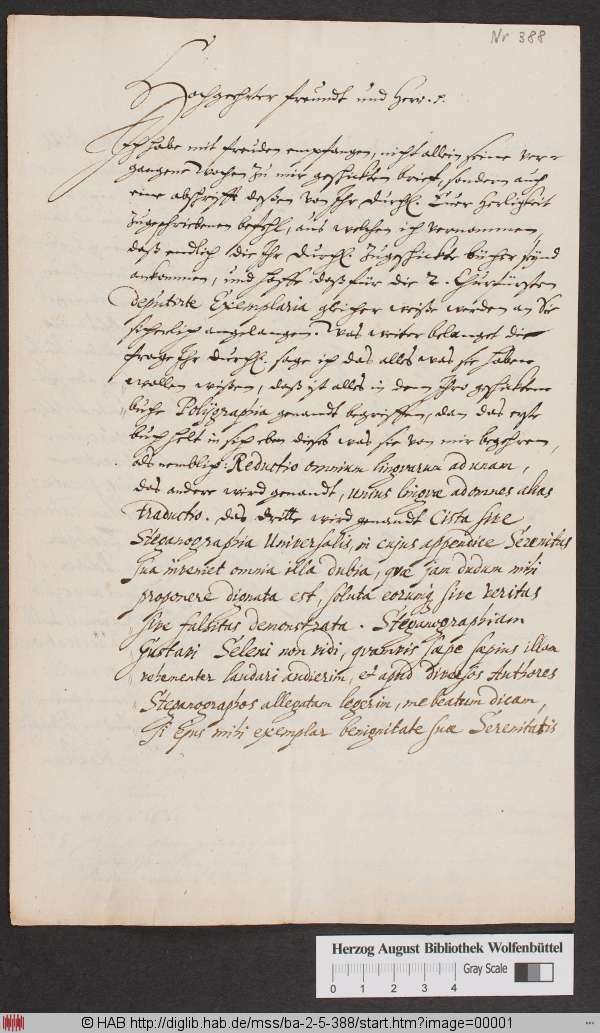 Nr 388
Hochgeehrter freundt und Herr. r.
Ich habe mit freuden empfangen, nicht allein seine ver-
gangene wochen zu mir geschickten brieff, sondern auch
eine abschrifft deßen von Ihr Durchl. Euer Herligkeit
zugeschriebenen befehl, aus welchen ich vernommen,
daß endlich die Ihr Durchl. zugeschickte bücher seynd
ankommen, und hoffe daß für die 2. Churfürsten
deputirte Exemplaria gleicher weiße werden an Sie
sicherlich angelangen. Was weiter belanget die
frage Ihr Durchl. sage ich das alles was sie haben
wollen wißen, daß ist alles in dem Ihro geschickten
buche Polygraphia genandt begriffen, dan das erste
buch helt in sich eben dieses was sie von mir begehren,
als nemblich: Reductio omnium linguarum ad unam,
das andere wird genandt, unius linguæ ad omnes alias
traductio. das dritte wird genandt Cista sive
Steganographia Universalis, in cujus appendice Serenitas
Sua inveniet omnia illa dubia, quæ jam dudum mihi
proponere dignata est, soluta eorumq sive veritas
sive falsitas demonstrata. Steganographiam
Gustavi Seleni non vidi, quamvis sæpe sæpius illam
vehementer laudari audierim, et apud diversos Authores
Steganographos allegatam legerim, me beatum dicam,
si Ejus mihi exemplar benignitate suæ Serenitatis
Herzog August Bibliothek Wolfenbüttel
Gray Scale
0 1 2 3 4
© HAB http://diglib.hab.de/mss/ba-2-5-388/start.htm?image=00001